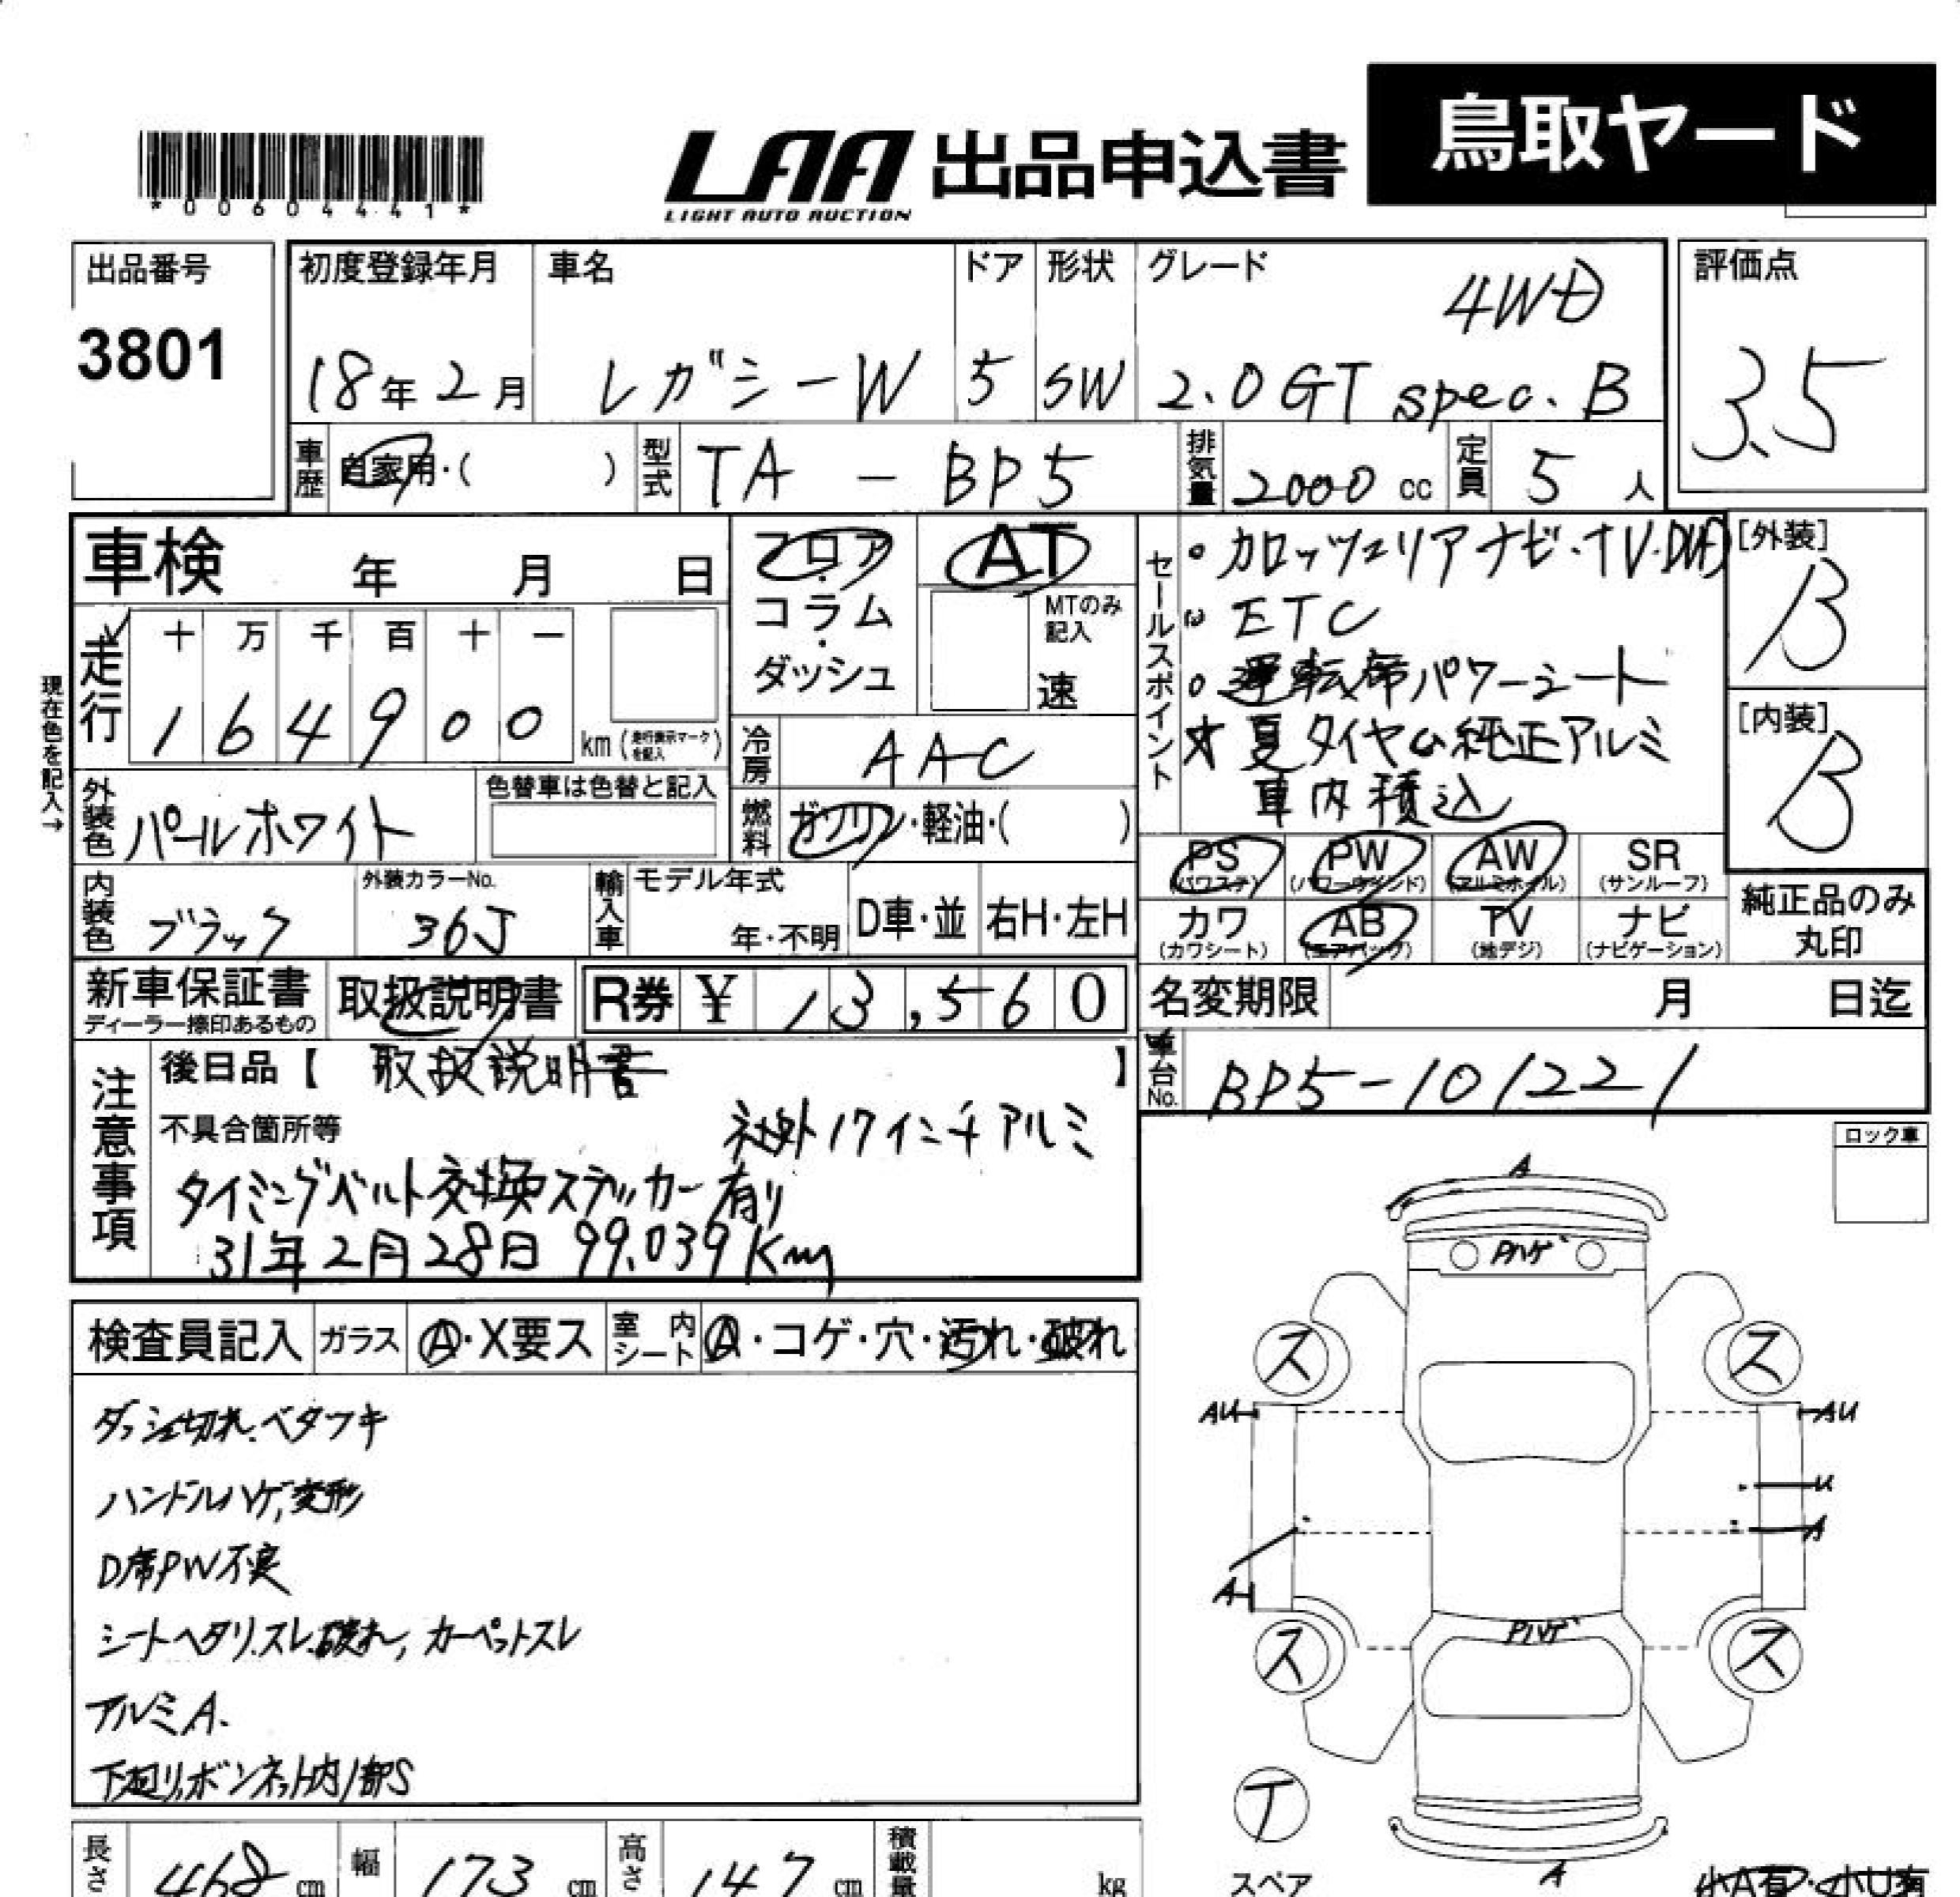 鳥取ヤード
LAA 出品申込書
LIGHT AUTO AUCTION
*00604441*
出品番号
3801
初度登録年月 車名 ドア 形状 グレード
4WD
18年2月 レガシーW 5 SW 2.0GT spec.B
評価点
3.5
車歴 自家用・( ) 型式 TA - BP5 排気量 2000 cc 定員 5 人
車検 年 月 日
フロア・コラム・ダッシュ
AT
MTのみ記入
速
セールスポイント
・カロッツェリアナビ・TV・DVD
ETC
○運転席パワーシート
☆夏タイヤ純正アルミ
車内積込
[外装]
B
[内装]
B
走行
十 万 千 百 十 一
1 6 4 9 0 0 km (走行表示マークを記入)
現在色を記入→
冷房 AAC
外装色 パールホワイト
色替車は色替と記入
燃料 ガソリン・軽油・( )
内装色 ブラック
外装カラーNo.
36J
輸入車 モデル年式
年・不明 D車・並 右H・左H
PS (パワステ) PW (パワーウインド) AW (アルミホイル) SR (サンルーフ)
カワ (カワシート) AB (エアバッグ) TV (地デジ) ナビ (ナビゲーション)
純正品のみ丸印
新車保証書
ディーラー捺印あるもの
取扱説明書
R券 ¥ 13,560
名変期限 月 日迄
車台No. BP5-101221
注意事項
後日品【 取扱説明書 】
不具合箇所等
社外17インチアルミ
タイミングベルト交換ステッカー有り
31年2月28日 99.039Km
ロック車
検査員記入 ガラス A・X要ス 室内シート A・コゲ・穴・汚れ・破れ
ダッシュ切れ.ベタツキ
ハンドルハゲ,変形
D席PW不良
シートヘタリ.スレ.破れ, カーペットスレ
アルミA.
下廻り,ボンネット内/部S
A
Pハゲ
ス ス
AU AU
U
A
A
Pハゲ
ス ス
T
スペア
A
小A有・小U有
長さ 468 cm 幅 173 cm 高さ 147 cm 積載量 kg